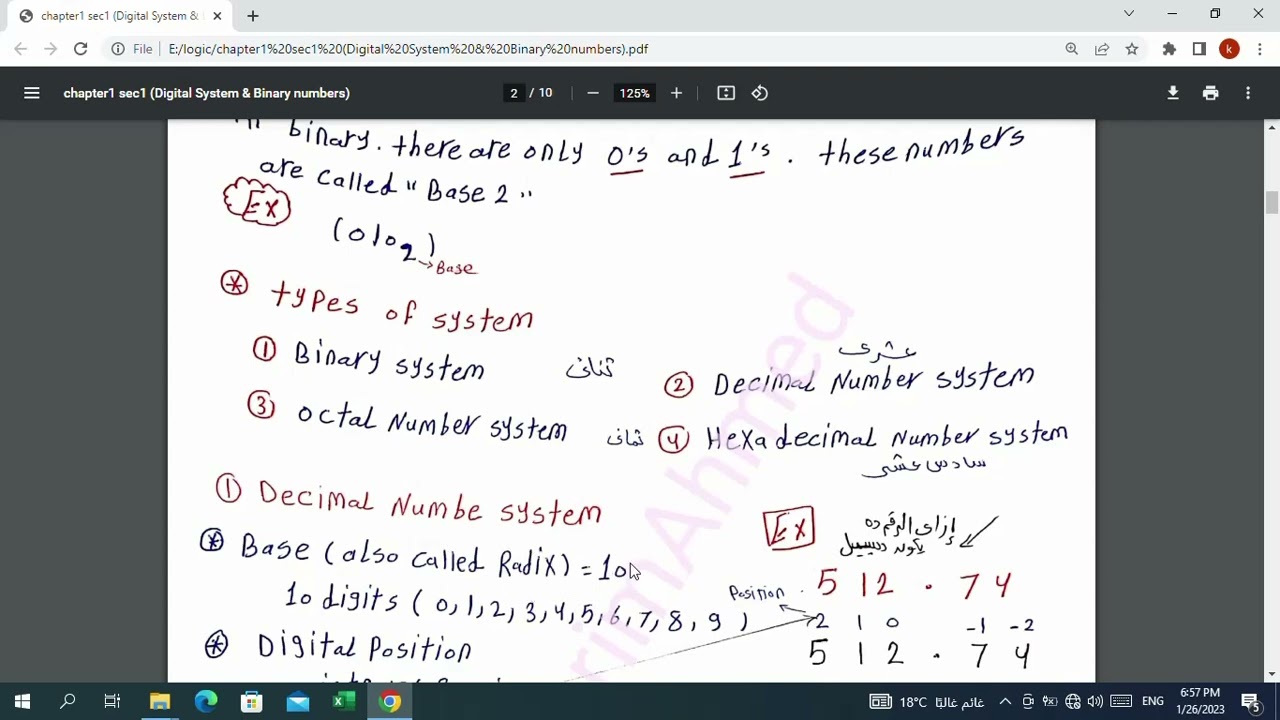 chapter1 sec1 (Digital System &
File
E:/logic/chapter1%20sec1%20(Digital%20System%20&%20Binary%20numbers).pdf
k
chapter1 sec1 (Digital System & Binary numbers)
2 / 10
125%
In binary. there are only 0's and 1's. these numbers
are called "Base 2"
EX
(010₂)
→Base
* types of system
① Binary system ثنائى
عشرى
② Decimal Number system
③ octal Number system ثمانى
④ Hexadecimal Number system
سادس عشرى
① Decimal Numbe system
* Base (also called Radix) = 10
10 digits (0, 1, 2, 3, 4, 5, 6, 7, 8, 9)
* Digital Position
EX
إزاى الرقم ده
512.74
Position
2 1 0 -1 -2
512.74
rimAhmed
18°C غائم غالبًا
ENG
6:57 PM
1/26/2023
5